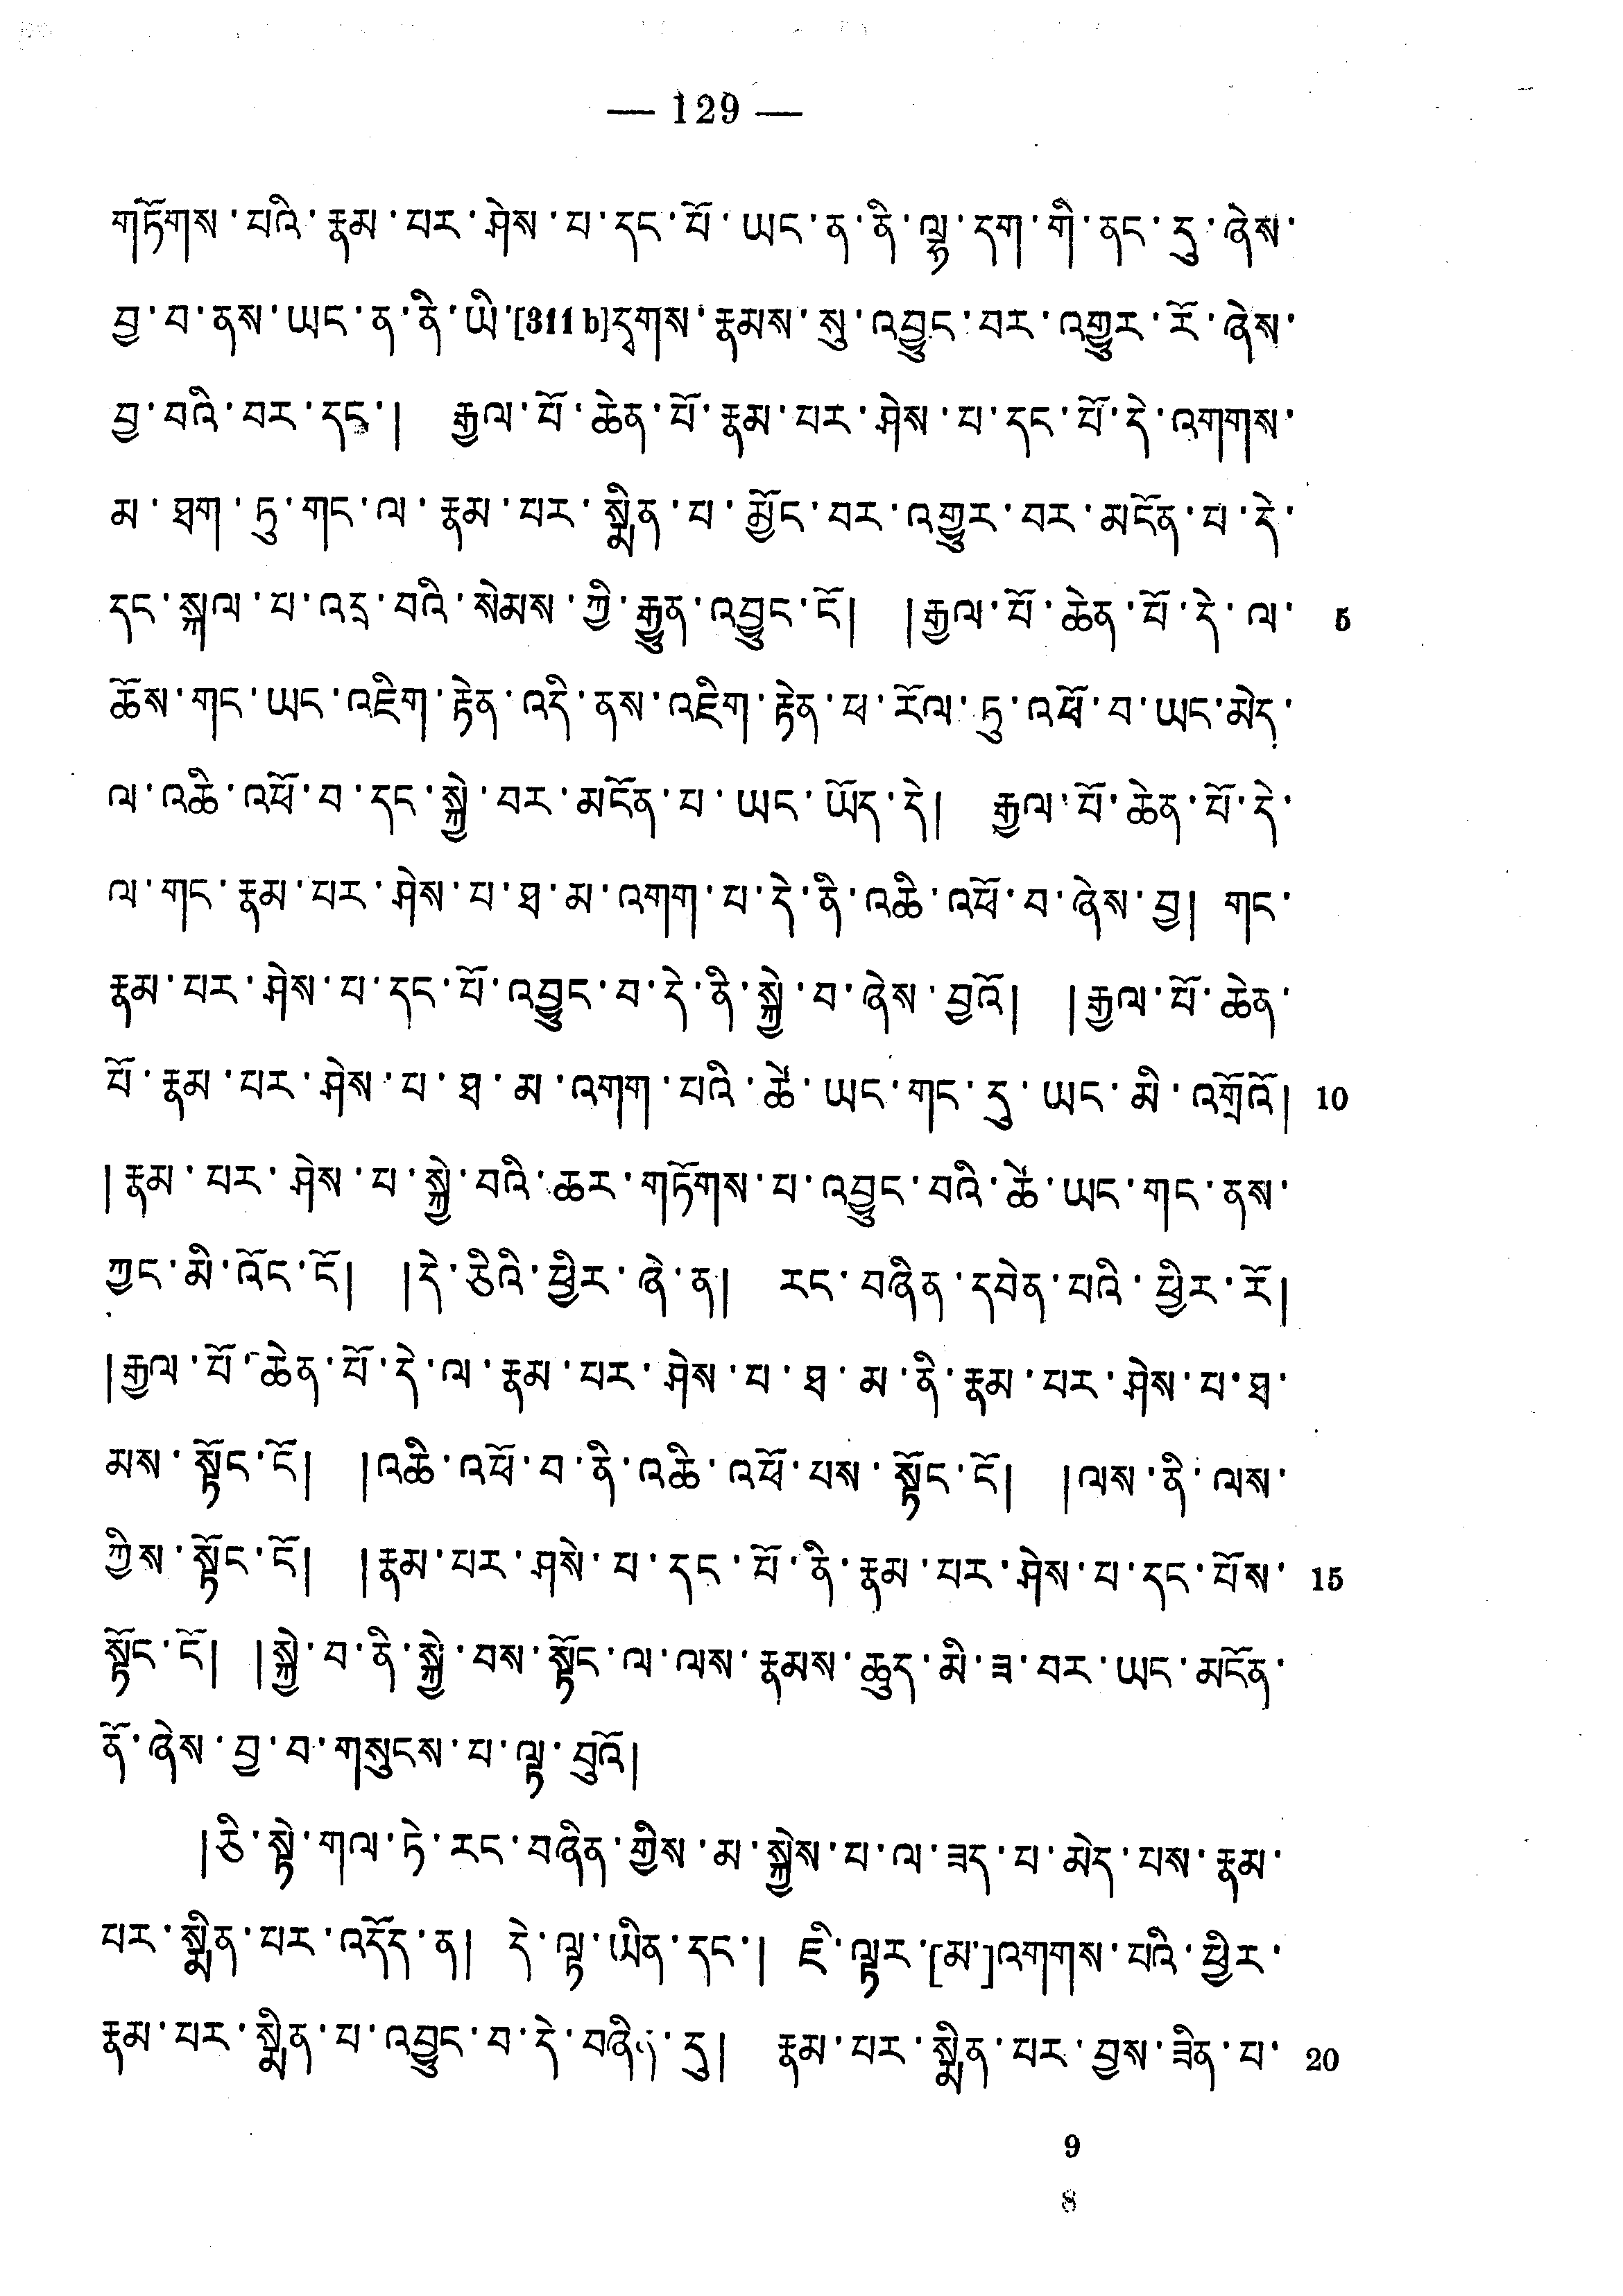 — 129 —
གཏོགས་པའི་རྣམ་པར་ཤེས་པ་དང་པོ་ཡང་ན་ནི་ལྷ་དག་གི་ནང་དུ་ཞེས་
བྱ་བ་ནས་ཡང་ན་ནི་ཡི་[311 b]དྭགས་རྣམས་སུ་འབྱུང་བར་འགྱུར་རོ་ཞེས་
བྱ་བའི་བར་དང་། རྒྱལ་པོ་ཆེན་པོ་རྣམ་པར་ཤེས་པ་དང་པོ་དེ་འགགས་
མ་ཐག་ཏུ་གང་ལ་རྣམ་པར་སྨིན་པ་མྱོང་བར་འགྱུར་བར་མངོན་པ་དེ་
དང་སྐལ་པ་འདྲ་བའི་སེམས་ཀྱི་རྒྱུན་འབྱུང་ངོ། །རྒྱལ་པོ་ཆེན་པོ་དེ་ལ་ 5
ཆོས་གང་ཡང་འཇིག་རྟེན་འདི་ནས་འཇིག་རྟེན་ཕ་རོལ་ཏུ་འཕོ་བ་ཡང་མེད་
ལ་འཆི་འཕོ་བ་དང་སྐྱེ་བར་མངོན་པ་ཡང་ཡོད་དེ། རྒྱལ་པོ་ཆེན་པོ་དེ་
ལ་གང་རྣམ་པར་ཤེས་པ་ཐ་མ་འགག་པ་དེ་ནི་འཆི་འཕོ་བ་ཞེས་བྱ། གང་
རྣམ་པར་ཤེས་པ་དང་པོ་འབྱུང་བ་དེ་ནི་སྐྱེ་བ་ཞེས་བྱའོ། །རྒྱལ་པོ་ཆེན་
པོ་རྣམ་པར་ཤེས་པ་ཐ་མ་འགག་པའི་ཚེ་ཡང་གང་དུ་ཡང་མི་འགྲོའོ། 10
།རྣམ་པར་ཤེས་པ་སྐྱེ་བའི་ཆར་གཏོགས་པ་འབྱུང་བའི་ཚེ་ཡང་གང་ནས་
ཀྱང་མི་འོང་ངོ། །དེ་ཅིའི་ཕྱིར་ཞེ་ན། རང་བཞིན་དབེན་པའི་ཕྱིར་རོ།
།རྒྱལ་པོ་ཆེན་པོ་དེ་ལ་རྣམ་པར་ཤེས་པ་ཐ་མ་ནི་རྣམ་པར་ཤེས་པ་ཐ་
མས་སྟོང་ངོ། །འཆི་འཕོ་བ་ནི་འཆི་འཕོ་བས་སྟོང་ངོ། །ལས་ནི་ལས་
ཀྱིས་སྟོང་ངོ། །རྣམ་པར་ཤསེ་པ་དང་པོ་ནི་རྣམ་པར་ཤེས་པ་དང་པོས་ 15
སྟོང་ངོ། །སྐྱེ་བ་ནི་སྐྱེ་བས་སྟོང་ལ་ལས་རྣམས་ཆུད་མི་ཟ་བར་ཡང་མངོན་
ནོ་ཞེས་བྱ་བ་གསུངས་པ་ལྟ་བུའོ།
།ཅི་སྟེ་གལ་ཏེ་རང་བཞིན་གྱིས་མ་སྐྱེས་པ་ལ་ཟད་པ་མེད་པས་རྣམ་
པར་སྨིན་པར་འདོད་ན། དེ་ལྟ་ཡིན་དང་། ཇི་ལྟར་[མ་]འགགས་པའི་ཕྱིར་
རྣམ་པར་སྨིན་པ་འབྱུང་བ་དེ་བཞིན་དུ། རྣམ་པར་སྨིན་པར་བྱས་ཟིན་པ་ 20
9
8